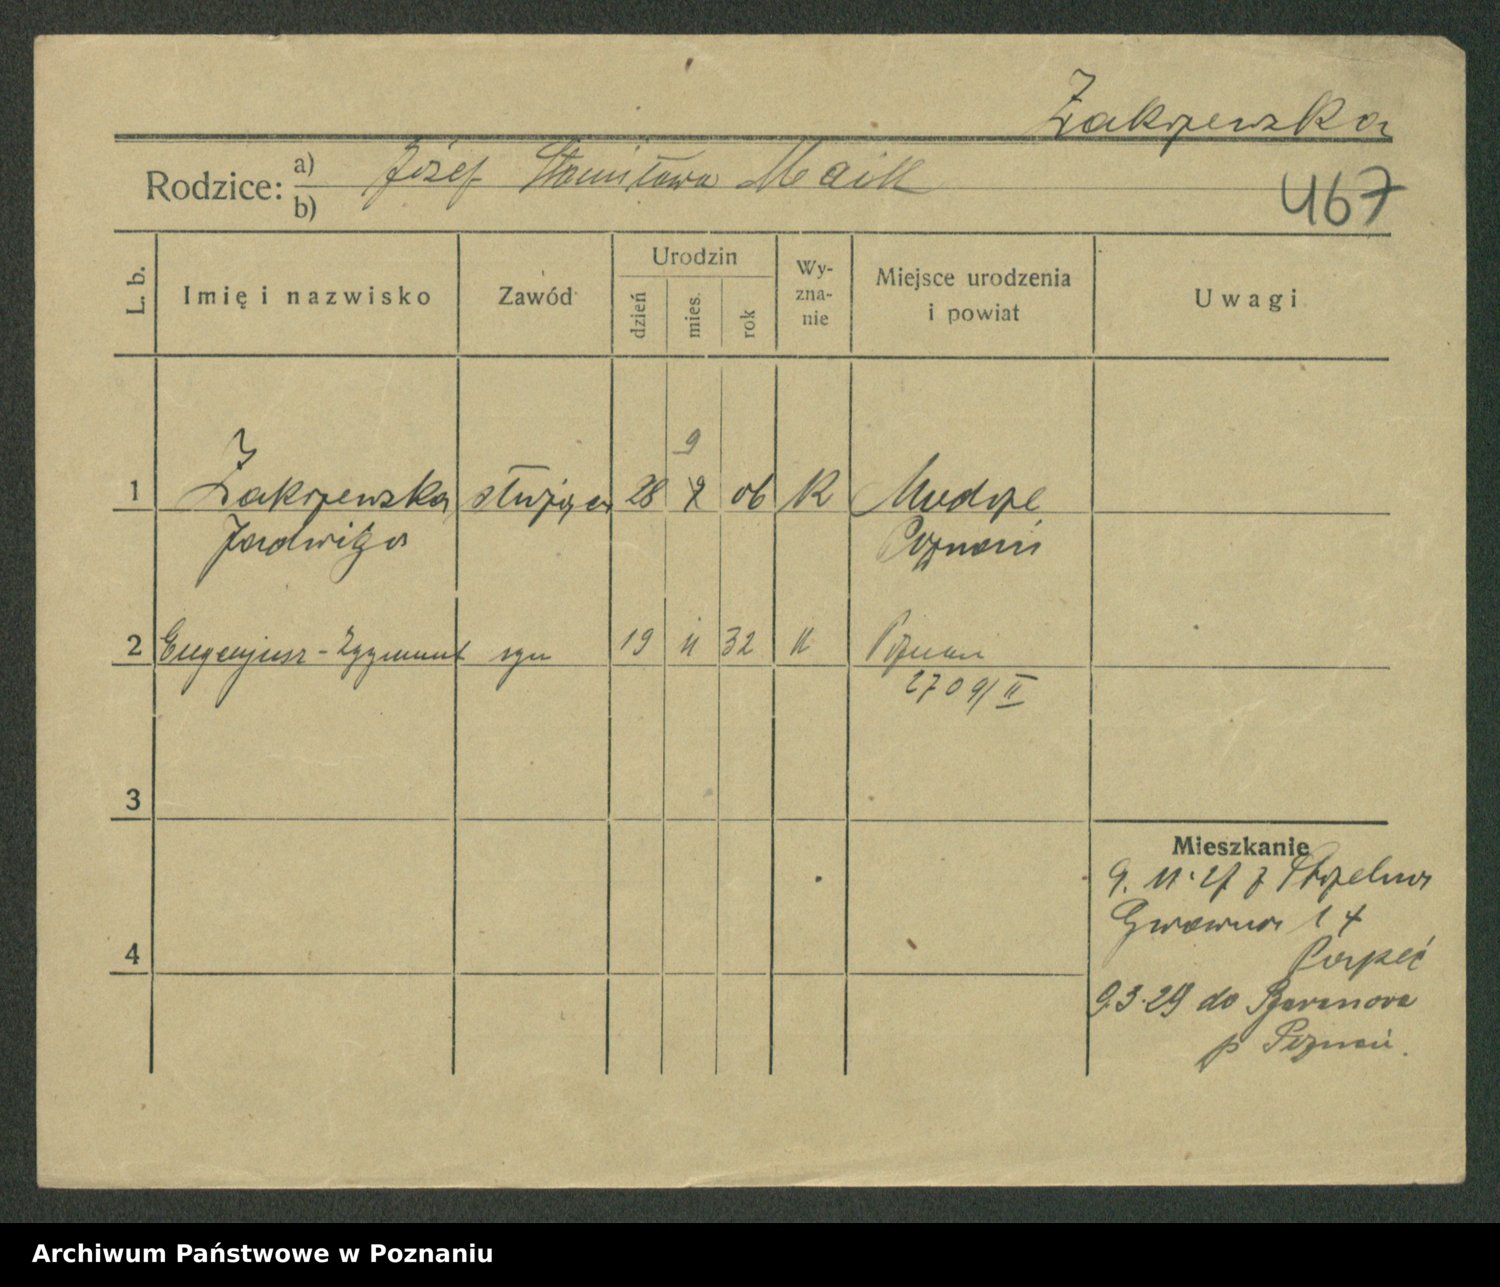 Zakrzewska
Rodzice: a) b) Józef Stanisława Maik
467
L. b. Imię i nazwisko Zawód Urodzin dzień mies. rok Wy-zna-nie Miejsce urodzenia i powiat Uwagi
9
1 Zakrzewska służąca 28 2 06 K Modrze
Jadwiga Poznań
2 Eugenjusz - Zygmunt syn 19 11 32 K Poznań
2709/II
3
Mieszkanie
9. 11. 27 z Strzelna
14
4
9.3.29 do Baranowa
p Poznań.
Archiwum Państwowe w Poznaniu